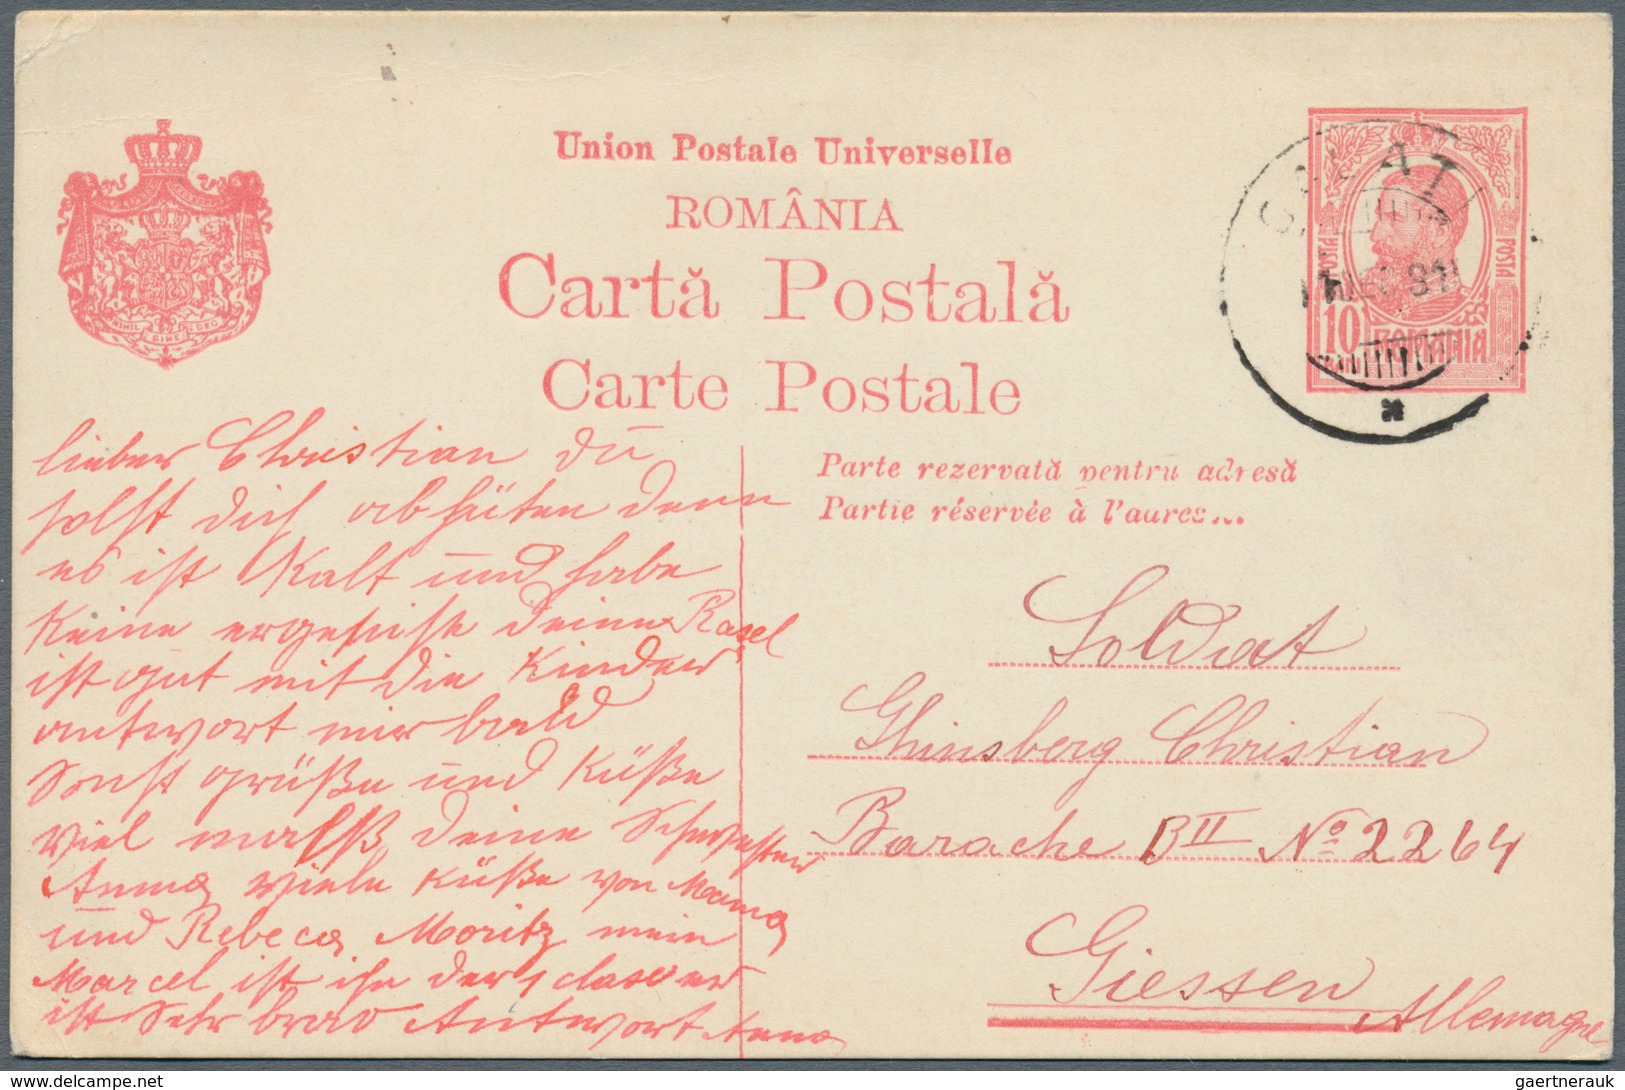 Union Postale Universelle
ROMÂNIA
Cartă Postală
Carte Postale
NIHIL SINE DEO
GALATI
DEC 91
POSTA
POSTA
10
BANI
ROMANIA
Parte rezervată pentru adresă
Partie réservée à l'adres...
lieber Christian du
solst dich abhüten denn
es ist Kalt und habe
Keine deine Rasel
ist gut mit die Kinder
antwort mir bald
Sonst grüße und Küße
viel malß deine Schwester
Anna viele Küße von Mama
und Rebeca Moritz mein
Marcel ist in der 1 class er
ist Sehr brav Antwort Anna
Soldat
Ghinsberg Christian
Barache BII No 2264
Giessen
Allemagne
gaertnerauk